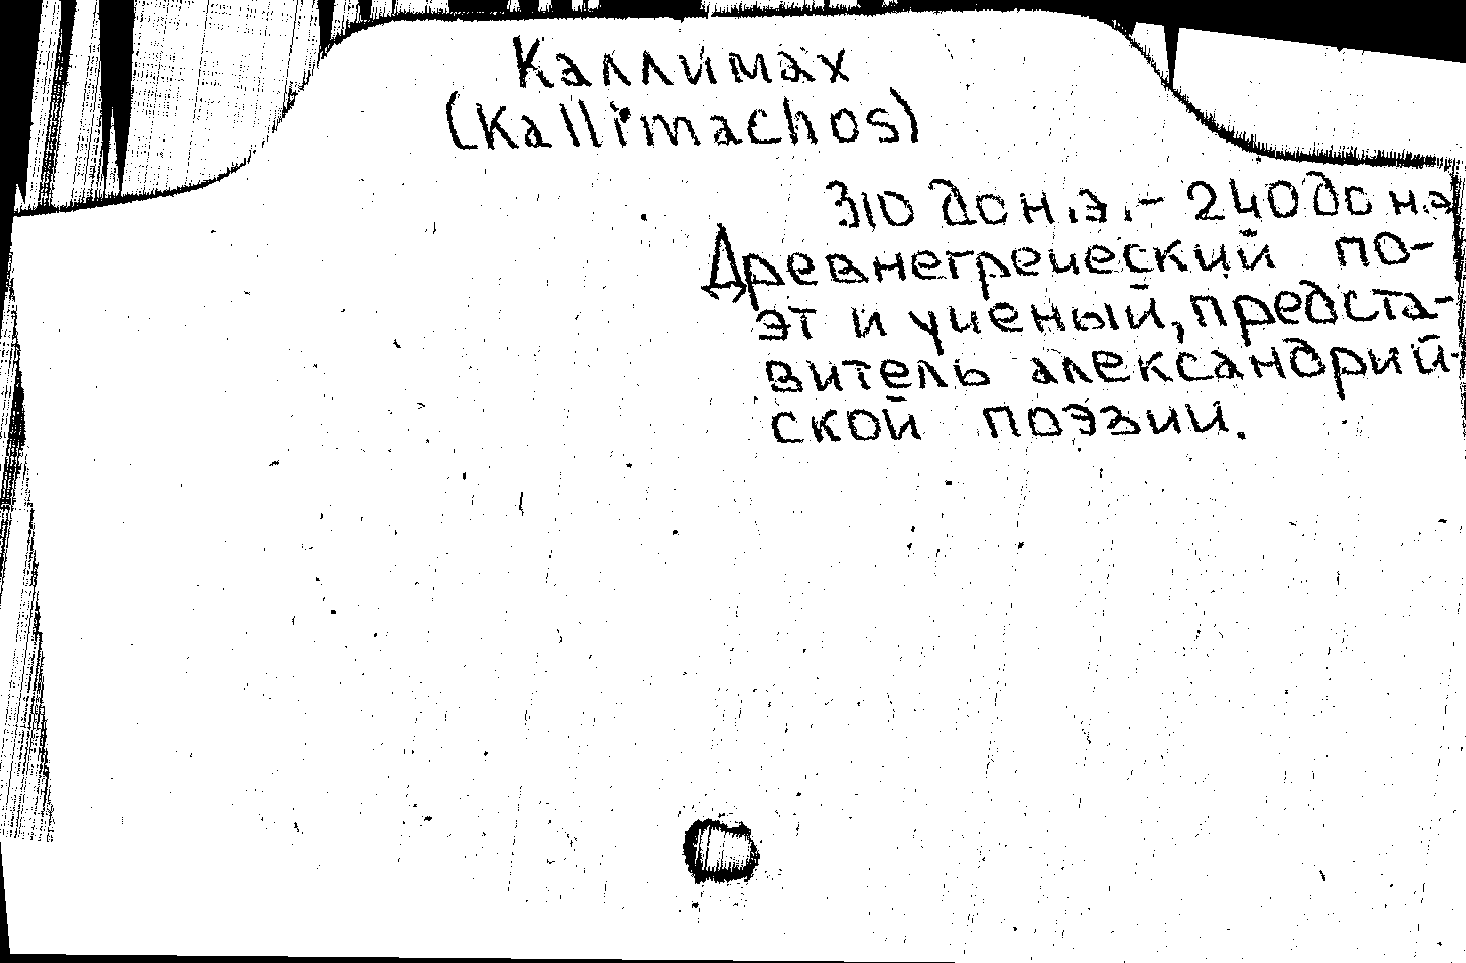 Каллимах
(Kallimachos)
310 до н.э.- 240 до н.э
Древнегреческий по-
эт и ученый, предста-
витель александрий-
ской поэзии.